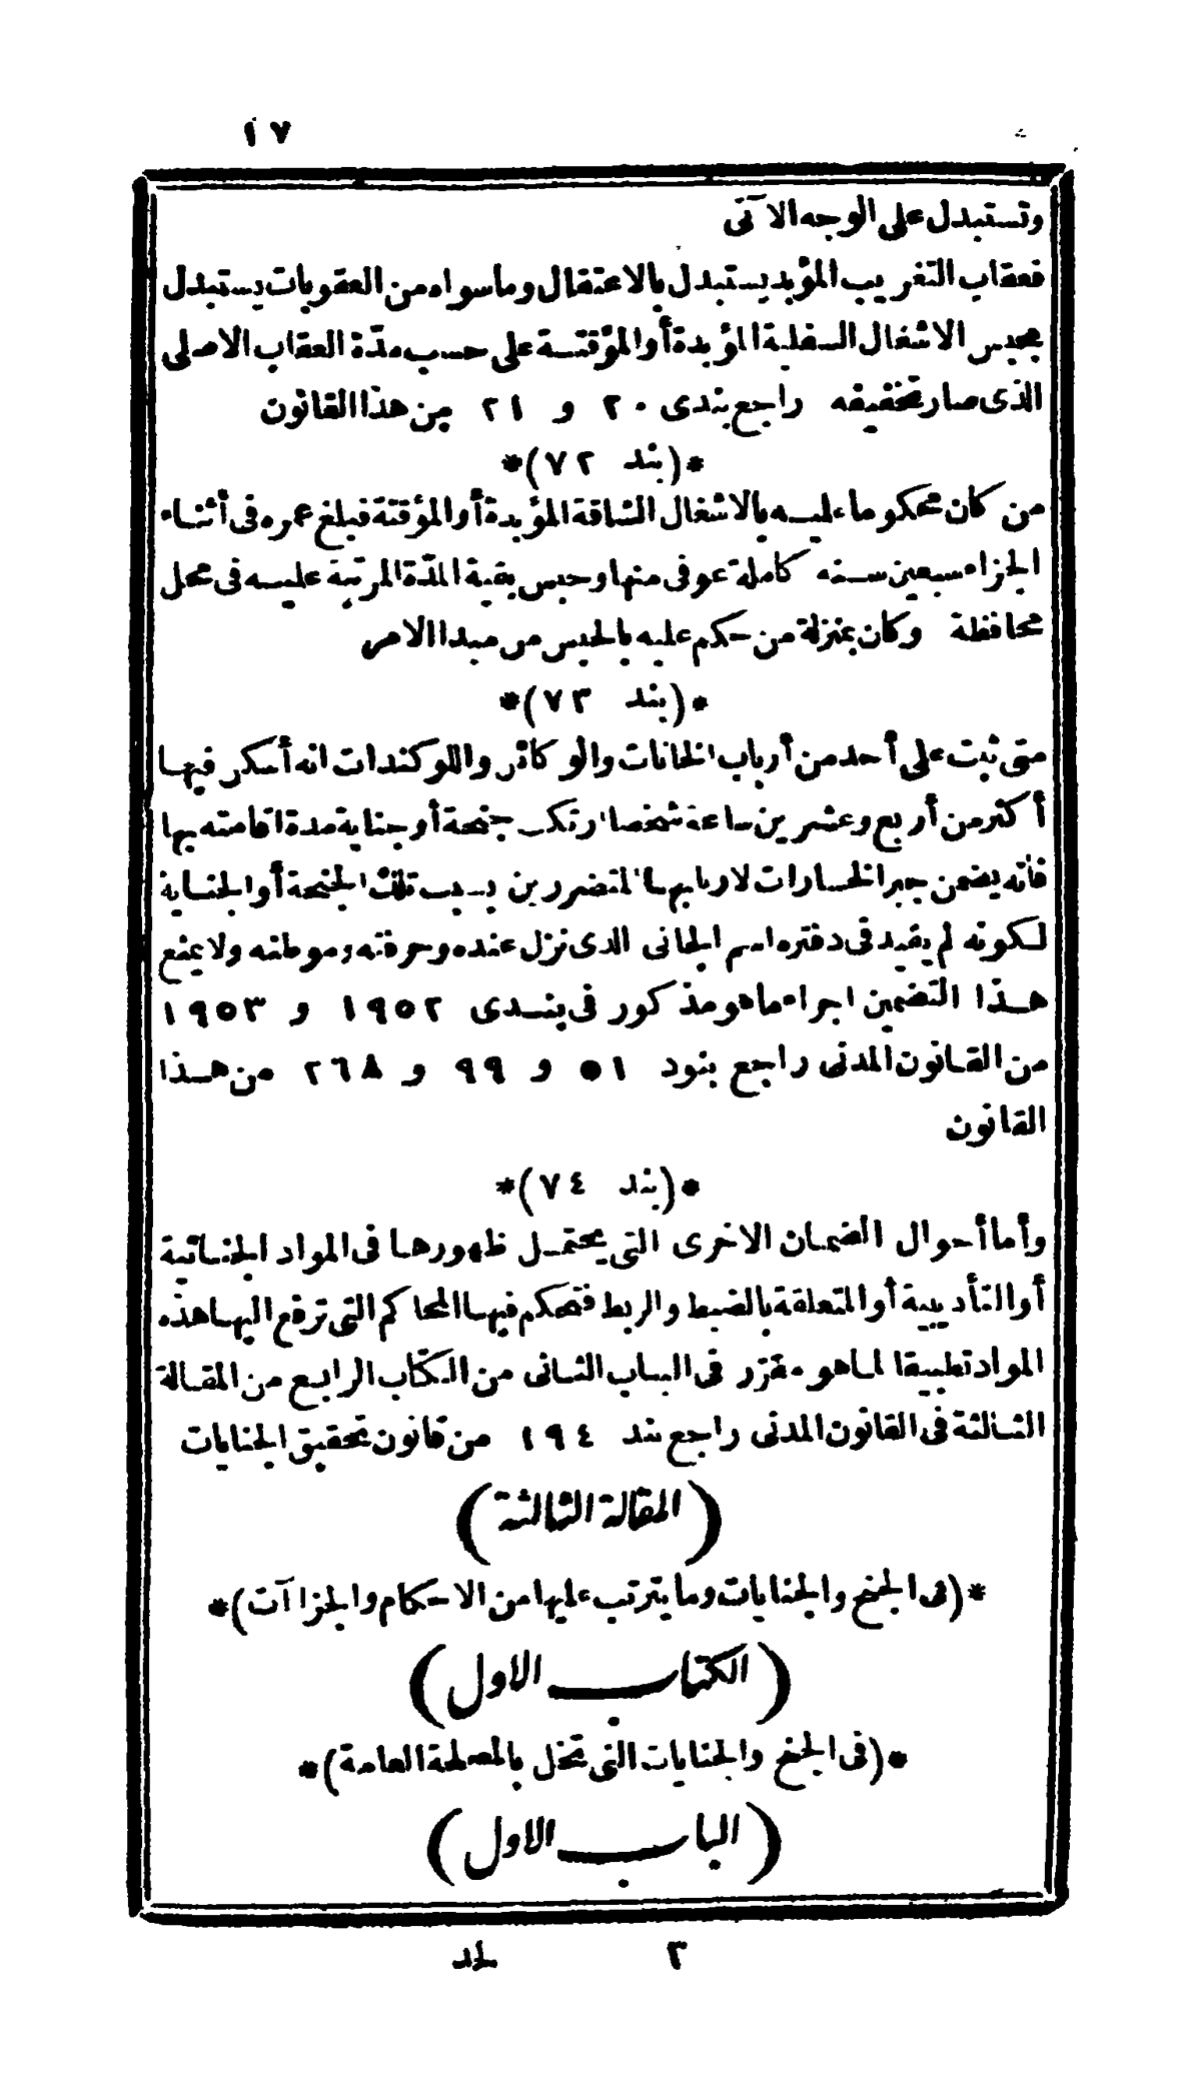 ١٧
وتستبدل على الوجه الآتى
فعقاب التغريب المؤبد يستبدل بالاعتقال وما سواه من العقوبات يستبدل
بحبس الاشغال السفلية المؤبدة أو المؤقتة على حسب مدّة العقاب الاصلى
الذى صار تخفيفه راجع بندى ٢٠ و ٢١ من هذا القانون
*(بند ٧٢)*
من كان محكوما عليه بالاشغال الشاقة المؤبدة أو المؤقتة فبلغ عمره فى أثناء
الجزاء سبعين سنة كاملة عوفى منها وحبس بقية المدّة المرتبة عليه فى محل
محافظة وكان بمنزلة من حكم عليه بالحبس من مبدا الامر
*(بند ٧٣)*
متى ثبت على أحد من أرباب الخانات والوكائل واللوكندات انه أسكن فيها
أكثر من أربع وعشرين ساعة شخصا ارتكب جنحة أو جناية مدة اقامته بها
فانه يضمن جبر الخسارات لاربابها المتضررين بسبب تلك الجنحة أو الجناية
لكونه لم يقيد فى دفتره اسم الجانى الذى نزل عنده وحرفته وموطنه ولا يمنع
هذا التضمين اجراء ما هو مذكور فى بندى ١٩٥٢ و ١٩٥٣
من القانون المدنى راجع بنود ٥١ و ٩٩ و ٢٦٨ من هذا
القانون
*(بند ٧٤)*
وأما أحوال الضمان الاخرى التى يحتمل ظهورها فى المواد الجنائية
أو التأديبية أو المتعلقة بالضبط والربط فتحكم فيها المحاكم التى ترفع اليها هذه
المواد تطبيقا لما هو مقرّر فى الباب الثانى من الكتاب الرابع من المقالة
الثالثة فى القانون المدنى راجع بند ١٩٤ من قانون تحقيق الجنايات
(المقالة الثالثة)
*(فى الجنح والجنايات وما يترتب عليها من الاحكام والجزاآت)*
(الكتاب الاول)
*(فى الجنح والجنايات التى تخل بالمصلحة العامة)*
(الباب الاول)
٣ لحد